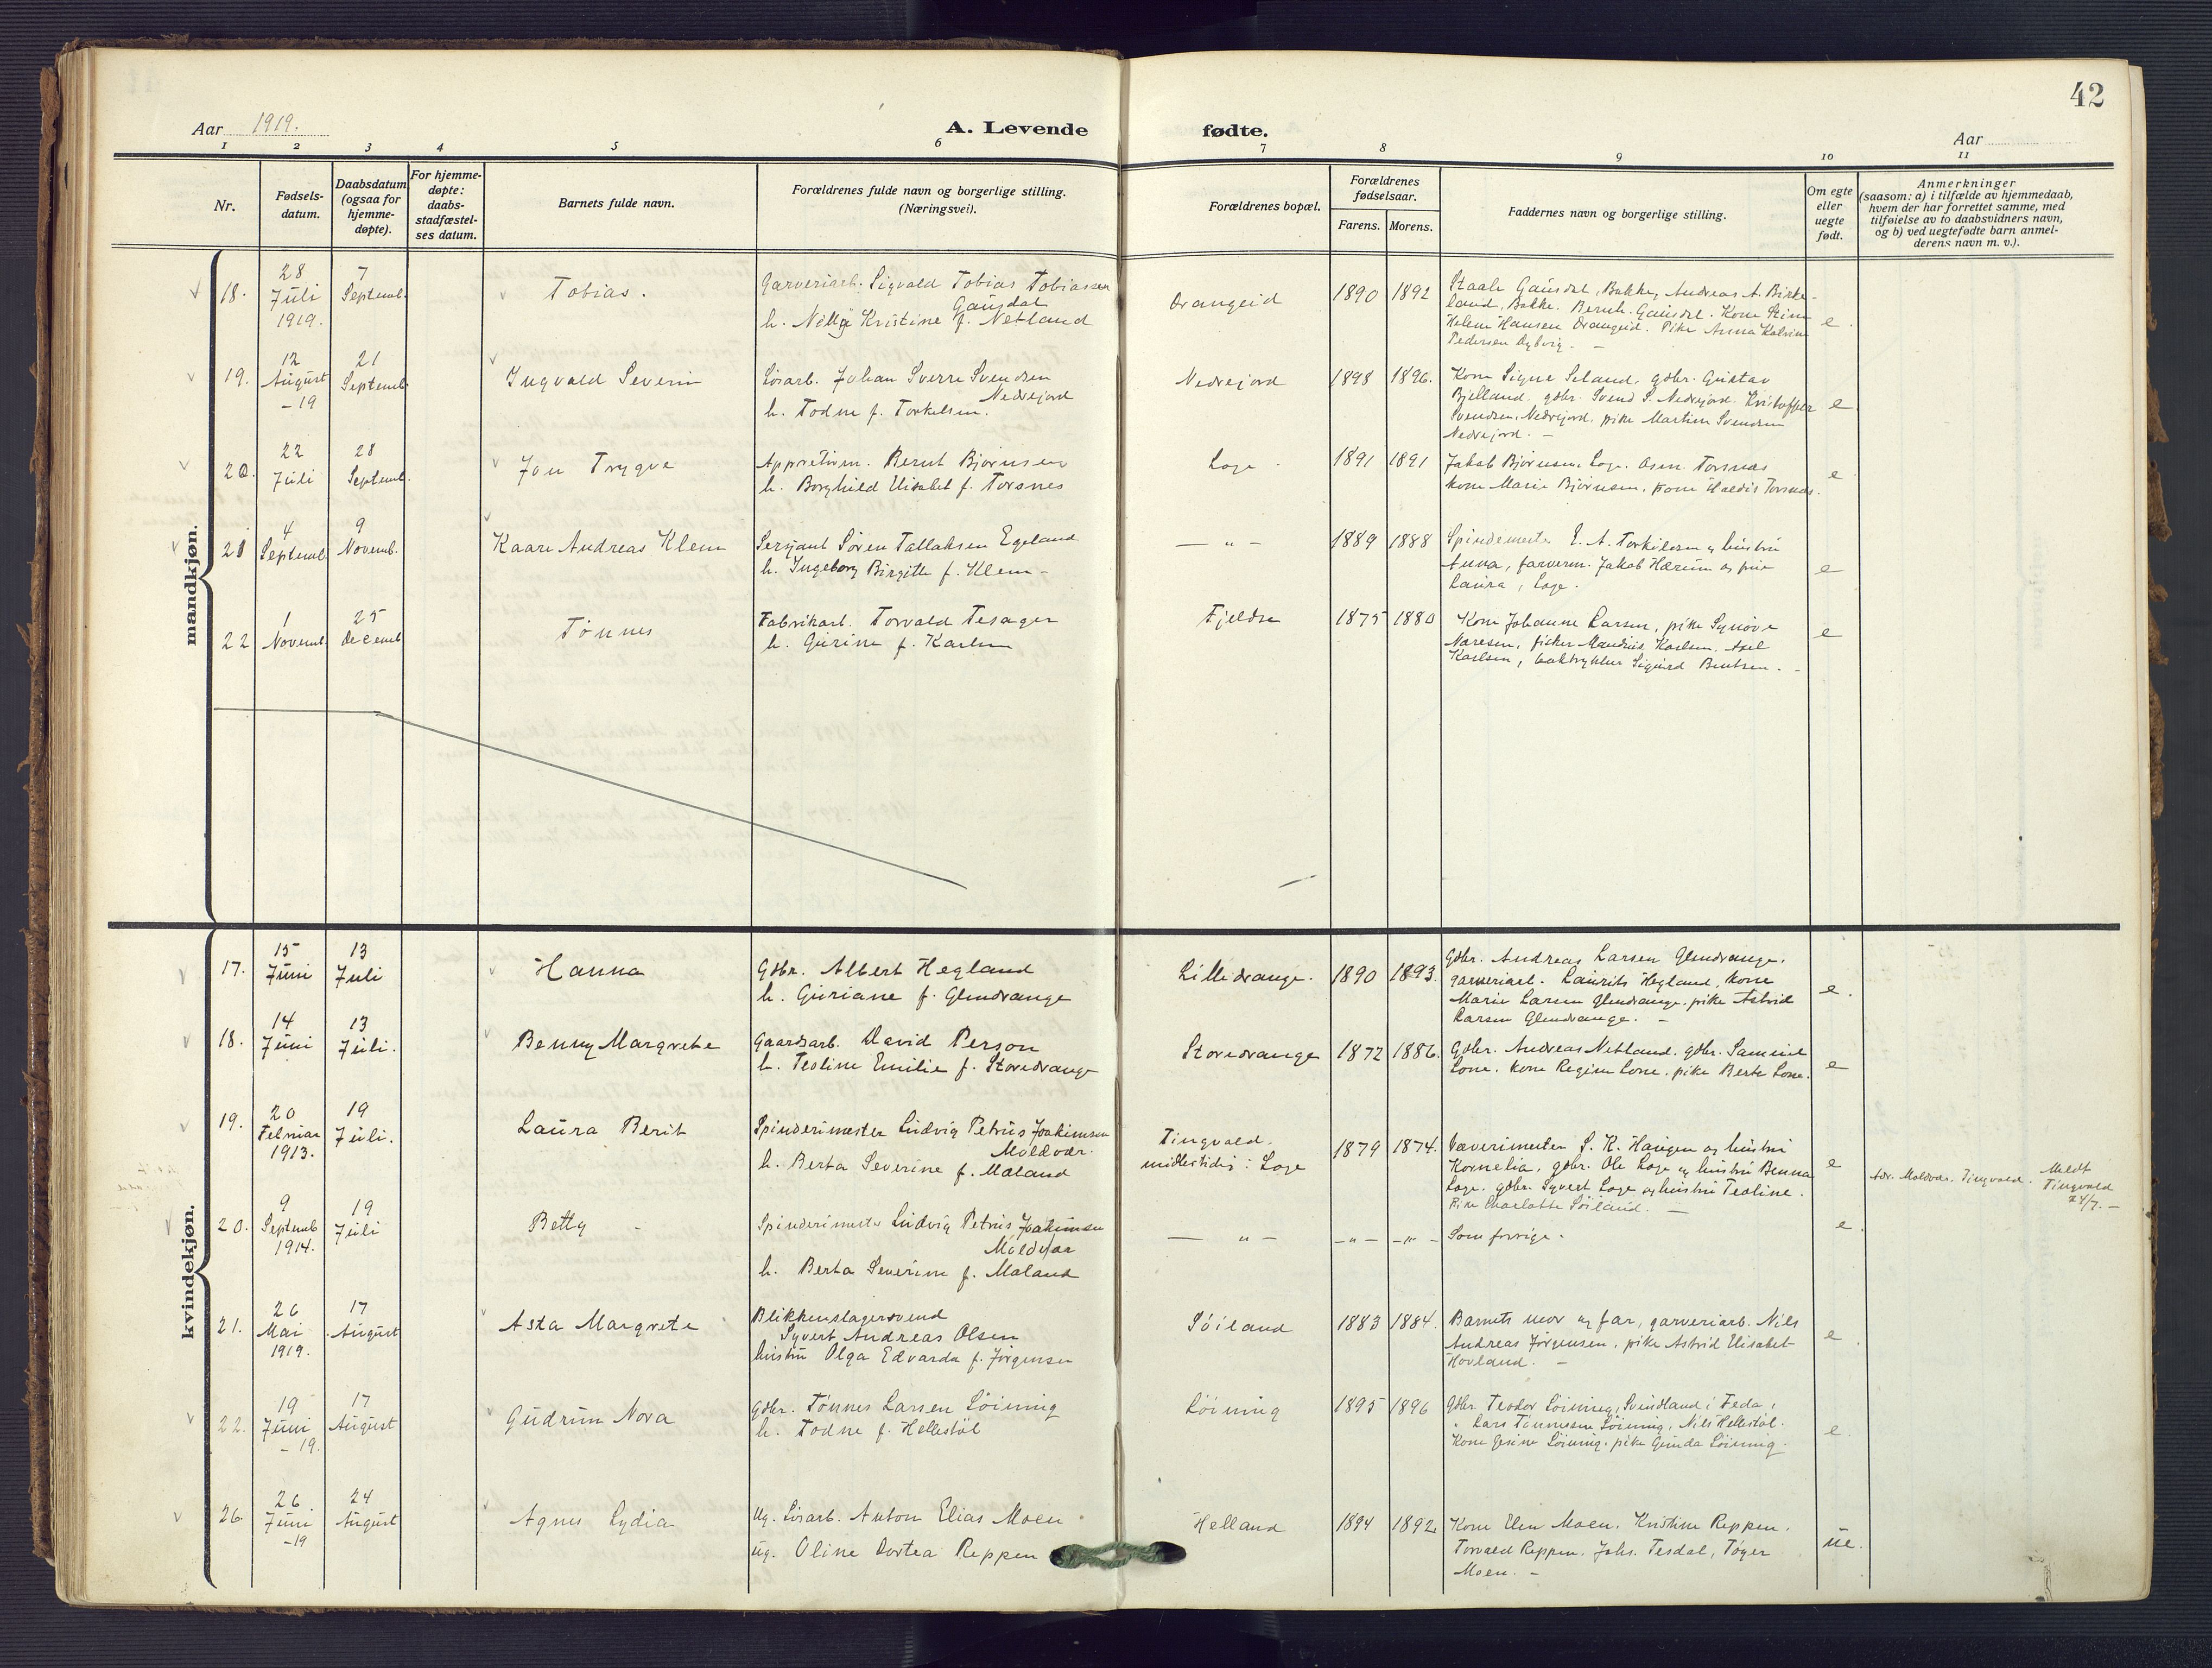 42
Aar 1919.
A. Levende fødte.
Aar
1 2 3 4 5 6 7 8 9 10 11
Nr.
Fødsels-
datum.
Daabsdatum
(ogsaa for
hjemme-
døpte).
For hjemme-
døpte:
daabs-
stadfæstel-
ses datum.
Barnets fulde navn.
Forældrenes fulde navn og borgerlige stilling.
(Næringsvei).
Forældrenes bopæl.
Forældrenes
fødselsaar.
Farens. Morens.
Faddernes navn og borgerlige stilling.
Om egte
eller
uegte
født.
Anmerkninger
(saasom: a) i tilfælde av hjemmedaab,
hvem der har forrettet samme, med
tilføielse av to daabsvidners navn,
og b) ved uegtefødte barn anmel-
derens navn m. v.).
mandkjøn.
18.
28
Juli
1919.
7
Septemb.
Tobias.
Garveriarb. Sigvald Tobias Tobiassen
Gausdal
h. Nelly Kristine f. Netland
Drangeid
1890 1892
Staale Gausdal, Bakke, Andreas A. Birke-
land, Bakke. Bernh. Gausdal. Kone Stine
Helene Hansen Drangeid. Pike Anna Katrine
Pedersen
e.
19.
12
August
-19
21
Septemb.
Ingvald Severin
Løsarb. Johan Sverre Svendsen
Nedrejord
h. Todne f. Torkelsen.
Nedrejord
1898 1896.
Kone Signe Seland, gdbr. Gustav
Bjelland, gdbr. Svend S. Nedrejord. Kristoffer
Svendsen, Nedrejord, pike Martine Svendsen
Nedrejord. -
e
20.
22
Juli
28
Septemb.
Jon Trygve
Appreturm. Bernt Bjørnsen
h. Borghild Elisabet f. Torsnes
Loge
1891 1891
Jakob Bjørnsen, Loge. Torsnes
kone Marie Bjørnsen, kone Haldis Torsnes.
e
21
4
Septemb.
9
Novemb.
Kaare Andreas Klem
Sersjant Søren Tallaksen Egeland
h. Ingeborg Birgitte f. Klem -
- " -
1889 1888
Spindemester E. A. Torkilsen og hustru
Anna, farverm. Jakob Hærum og frue
Laura, Loge.
e
22
1
Novemb.
25
Decemb
Tønnes
Fabrikarb. Torvald Tesager
h. Gurine f. Karlsen
Fjeldse
1875 1880
Kone Johanne Larsen, pike Synøve
Næresen, fisker Mandius Karlsen. Axel
Karlsen, boktrykker Sigurd Bentsen. -
e
kvindekjøn.
17.
15
Juni
13
Juli
Hanna
Gdbr. Albert Hegland
h. Guriane f. Glendrange
Lilledrange.
1890 1893.
Gdbr. Andreas Larsen Glendrange.
garveriarb. Laurits Hegland, kone
Marie Larsen Glendrange, pike Astrid
Larsen Glendrange. -
e.
18.
14
Juni
13
Juli.
Benny Margrete
Gaardsarb. David Person
h. Teoline Emilie f. Storedrange
Storedrange
1872 1886.
Gdbr. Andreas Netland. gdbr. Samuel
Lone. kone Regine Lone. pike Berte Lone.
e
19.
20
Februar
1913.
19
Juli.
Laura Berit
Spinderimester Ludvig Petrus Joakimsen
Moldvær.
h. Berta Severine f. Maland
Tingvold.
midlertidig: Loge
1879 1874.
Væverimester S. K. Haugen og hustru
Kornelia, gdbr. Ole Loge og hustru Benna
Loge. gdbr. Syvert Loge og hustru Teoline.
Pike Charlotte Søiland. -
e
Adr. Moldvær. Tingvold.
Meldt
Tingvold
24/7. -
20.
9
Septemb
1914.
19
Juli
Betty -
Spinderimester Ludvig Petrus Joakimsen
Moldvær
h. Berta Severine f. Maland
- " -
- " - - " -
Som forrige.
e.
21.
26
Mai
1919.
17
August
Asta Margrete
Blikkenslagersvend
Syvert Andreas Olsen
hustru Olga Edvarda f. Jørgensen
Søiland
1883 1884.
Barnets mor og far, garveriarb. Nils
Andreas Jørgensen, pike Astrid Elisabet
Hovland. -
e.
22.
19
Juni
-19.
17
August
Gudrun Nora
gdbr. Tønnes Larsen Løining
h. Todne f. Hellestøl
Løining
1895 1896
Gdbr. Teodor Løining, Svindland i Feda,
" Lars Tønnessen Løining, Nils Hellestøl.
Kone Gesine Løining. pike Gunda Løining.
e.
26.
26.
Juni
-19
24
August
Agnes Lydia
Ug. Løsarb. Anton Elias Moen
ug. Oline Dortea Reppen
Helland
1894 1892.
Kone Elen Moen. Kristine Reppen.
Torvald Reppen. Johs. Tesdal, Tøger
Moen. -
ue.